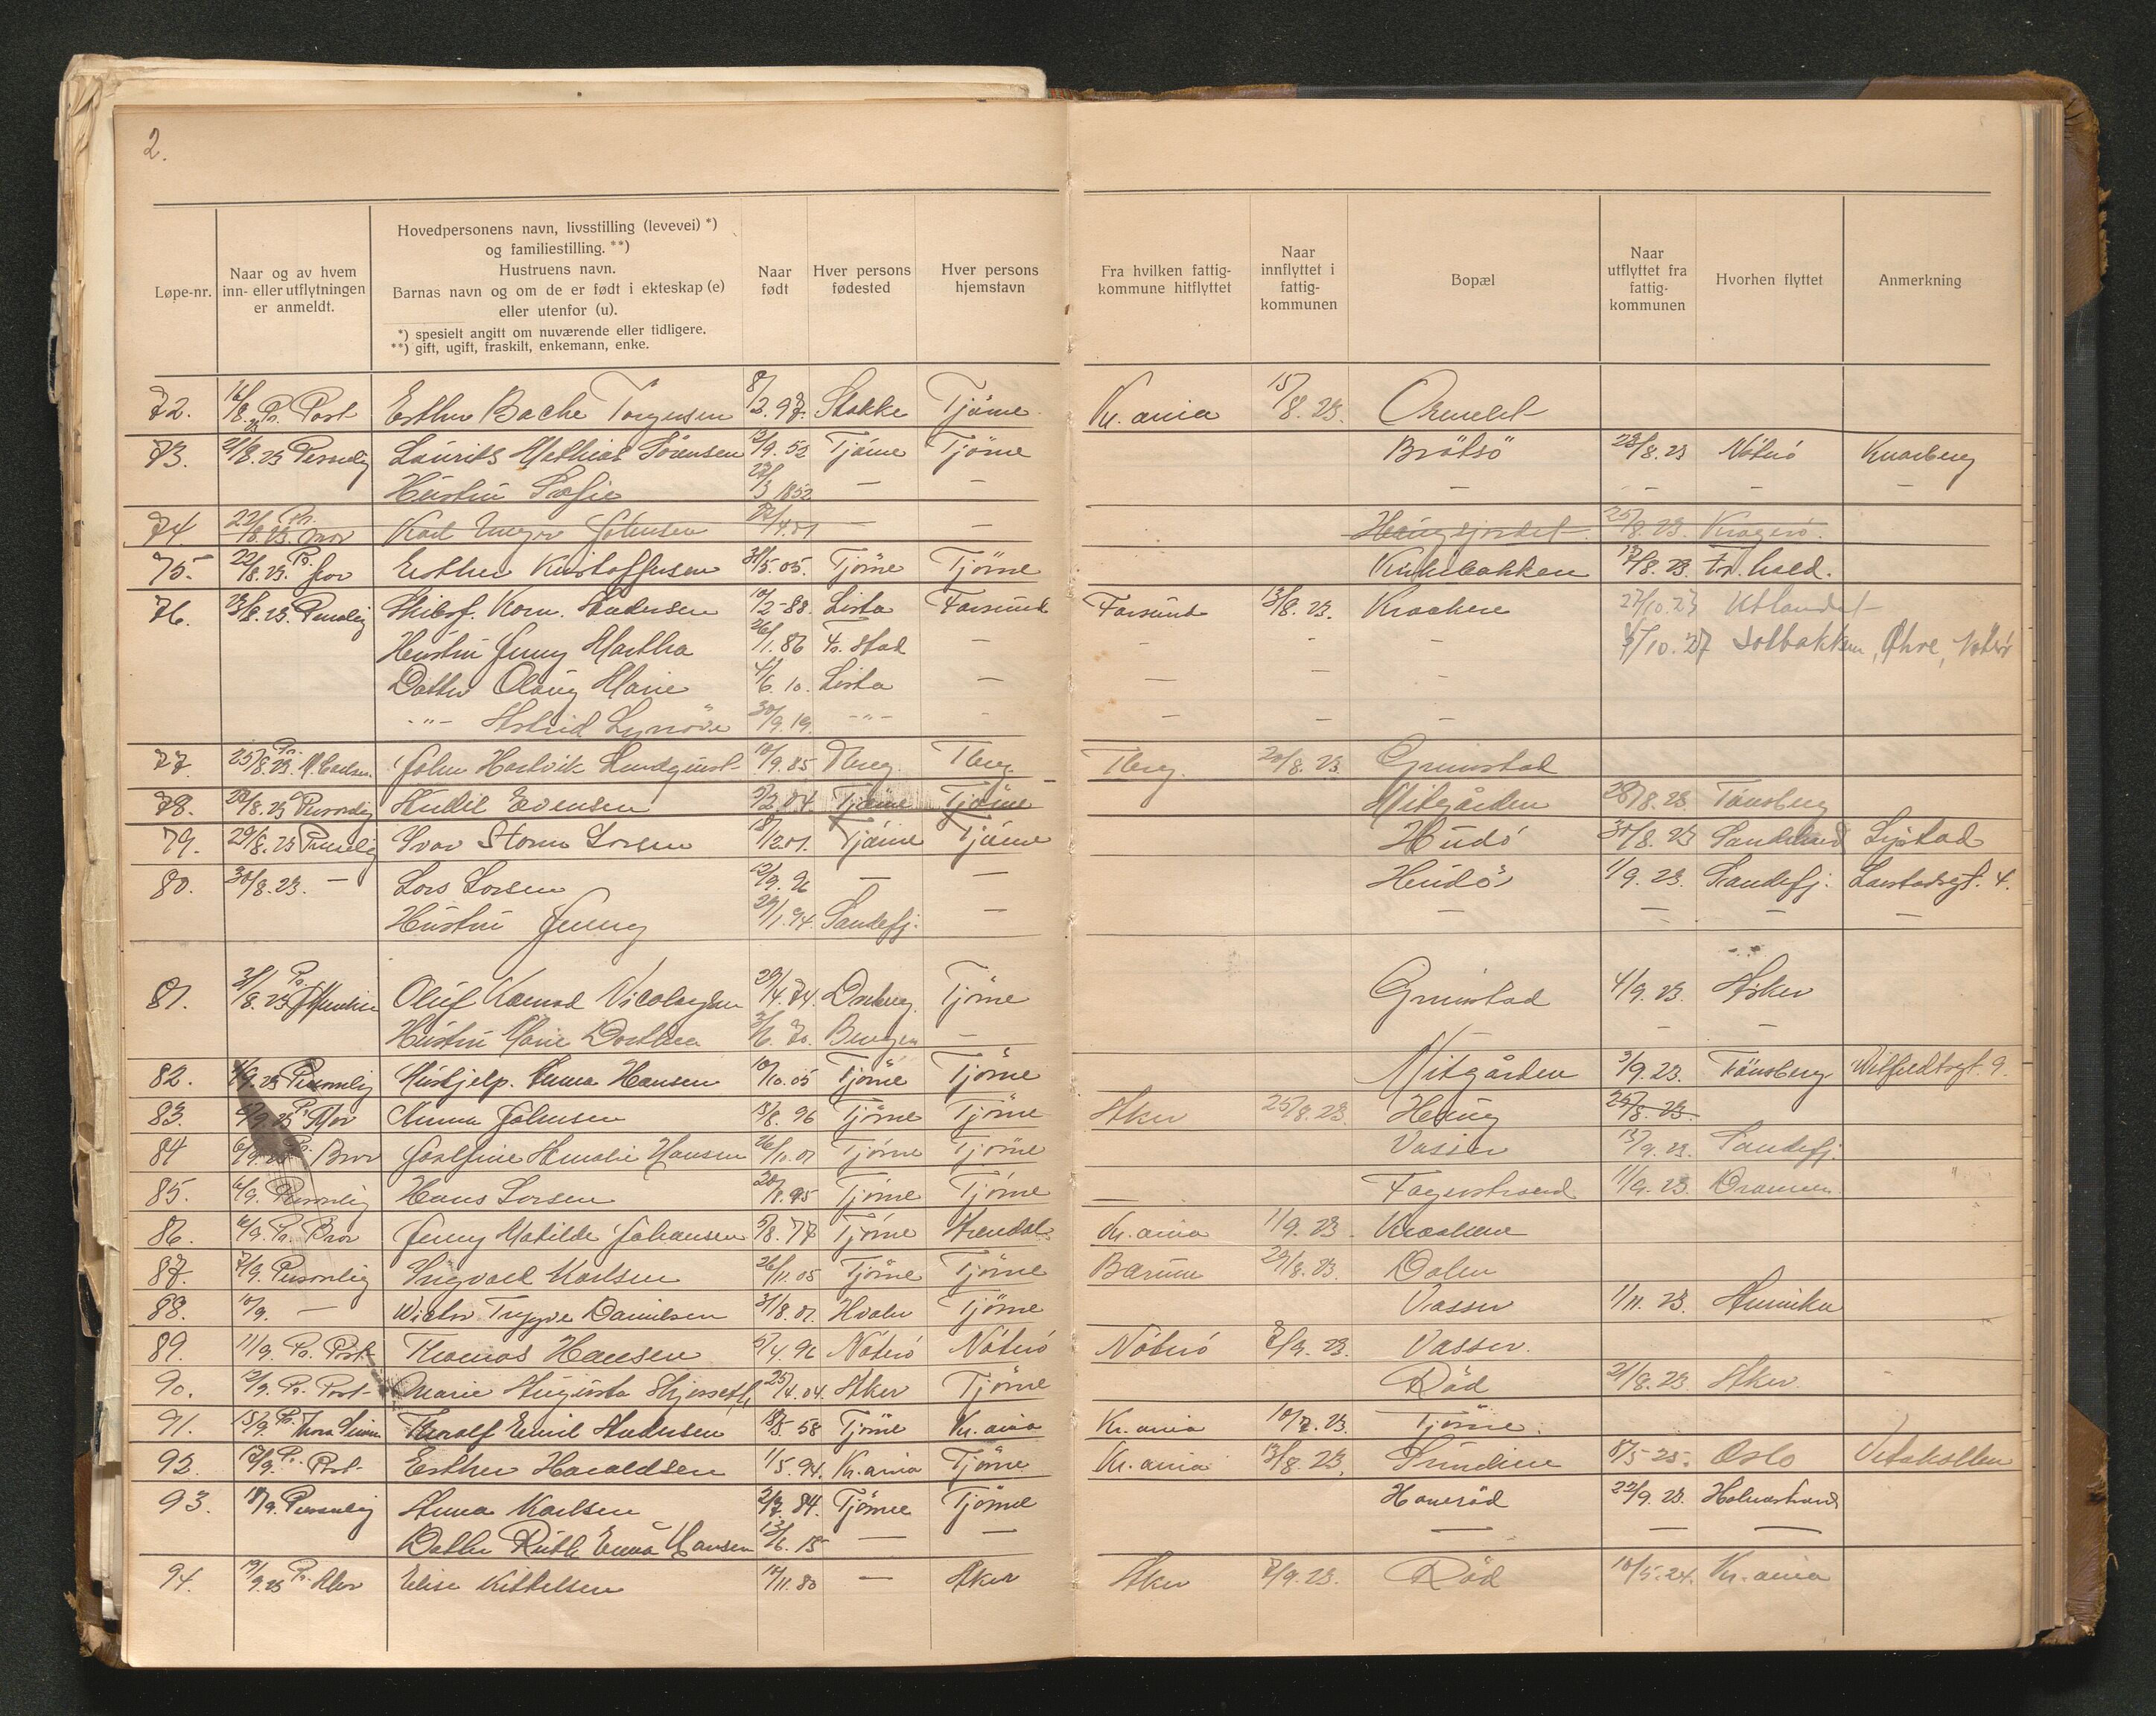 2.
Løpe-nr.
Naar og av hvem
inn- eller utflytningen
er anmeldt.
Hovedpersonens navn, livsstilling (levevei) *)
og familiestilling. **)
Hustruens navn.
Barnas navn og om de er født i ekteskap (e)
eller utenfor (u).
*) spesielt angitt om nuværende eller tidligere.
**) gift, ugift, fraskilt, enkemann, enke.
Naar
født
Hver persons
fødested
Hver persons
hjemstavn
Fra hvilken fattig-
kommune hitflyttet
Naar
innflyttet i
fattig-
kommunen
Bopæl
Naar
utflyttet fra
fattig-
kommunen
Hvorhen flyttet
Anmerkning
72. 16/8 23 Pr. Post Esther Bache Torgersen 8/2. 97. Stokke Tjöme Kr.ania 15/8. 23. Ormelet
73. 21/8. 23 Personlig Laurits Mathias Sörensen /9. 52 Tjöme Tjöme Brötsö 23/8. 23 Nöterö Knarberg
Hustru Sofie /3 1852 — — — — — —
74 22/8. 23. Pr. mor Karl Johnsen 22/4. 01. — — Haugsjordet 25/8. 23. Kragerö.
75. 22/8. 23. Pr. far Esther Kristoffersen 31/5. 05. Tjöme Tjöme Kirkebakken 17/8. 23. Fr. hald.
76. 23/8. 23. Personlig Korn. Andersen 10/2 - 88 Lista Farsund Farsund 13/8. 23. Kraakere 27/10. 23 Utlandet
Hustru Jenny Martha 26/1. 86 Fr. stad — — - - /10. 27 Solbakken, Öhre, Nöterö
Datter Olaug Marie 4/6. 10. Lista — — — -
-"- Astrid Synöve 30/9. 19. -"- - — — -
77. 25/8. 23. Pr. M. Carlsen. John Hartvik Lundquist 10/9. 85 Tberg. Tberg. Tberg. 20/8. 23. Grimstad
78. 28/8. 23 Personlig Evensen /2. 04 Tjöme Tjöme Mitgården 28/8. 23. Tönsberg
79. 29/8. 23 Personlig Ivar Storm Larsen 18/12 01. Tjöme Tjöme Hudö 30/8. 23 Lystad
80. 30/8. 23. — Lars Larsen 12/9. 96 — — Hudö 1/9. 23. Sandefj. 4.
Hustru Jenny 29/1. 94. Sandefj. — — — — —
81. 31/8. 23 Pr. Oluf Konrad Nicolaysen 29/4. 74. Tjöme Grimstad 4/9. 23. Asker
Hustru Marie Dorthea /6. 70. Bergen — — —
82. /9. 23 Personlig Husjelp. Anna Hansen 10/10. 05 Tjöme Tjöme Mitgården 3/9. 23. Tönsberg 9.
83. /9. 23 Pr. Anna Johnsen 13/8. 96 Tjöme Tjöme Aker 25/8. 23. Haug 25/8. 23.
84 6/9. 23 Pr. Bror Josefine Amalie Hansen 26/10. 01 Tjöme Tjöme Vasser 13/9. 23. Sandefj.
85. 6/9. Personlig Hans Larsen 20/8. 95 Tjöme Tjöme — Fagerstrand 11/9. 23. Drammen
86. 6/9. Pr. Bror Jenny Matilde Johansen /8. 77 Tjöme Arendal Kr.ania 1/9. 23. Kraakere
87. 7/9. Personlig Sigvald Karlsen 26/11. 05 Tjöme Tjöme Bærum 29/8. 23. Dalen
88. 10/9. — Victor Trygve Danielsen 31/8. 01. Hvaler Tjöme Vasser 1/11. 23. Amerika
89. 11/9. Pr. Post Thomas Hansen /4. 96 Nöterö Nöterö Nöterö 7/9. 23. Vasser.
90. 12/9. Pr. Post Marie Augusta 25/4. 04. Aker Tjöme Röd 21/8. 23. Aker
91. 15/9. Pr. Thoralf Emil Andersen 18/5 58 Tjöme Kr.ania Kr.ania 10/7. 23. Tjöme.
92. 17/9. Pr. Post Esther Haraldsen 1/5. 94. Kr.ania Tjöme Kr.ania 13/8. 23. Sundene 8/5 - 25. Oslo Vetakollen
93. 18/9. Personlig Anna Karlsen 2/7. 84. Tjöme Tjöme Haneröd 22/9. 23. Holmestrand
Datter Ruth Hansen 13/6. 15 — — — — —
94. 19/9. 23 Pr. Elise Kittelsen 14/11. 80 — Aker Aker 7/9. 23. Röd 10/5. 24. Kr.ania